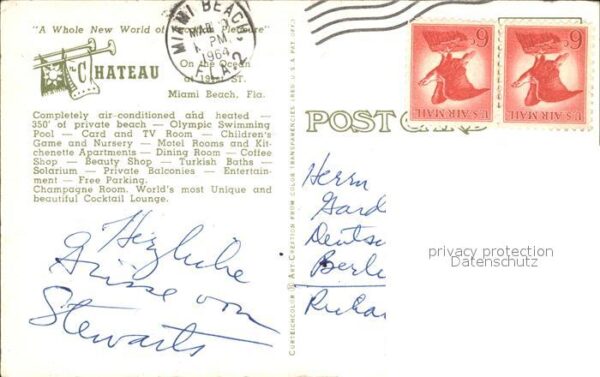 "A Whole New World of Tropical Pleasure"
CHATEAU
On the Ocean
at 191st ST.
Miami Beach, Fla.
Completely air-conditioned and heated —
350' of private beach — Olympic Swimming
Pool — Card and TV Room — Children's
Game and Nursery — Motel Rooms and Kit-
chenette Apartments — Dining Room — Coffee
Shop — Beauty Shop — Turkish Baths —
Solarium — Private Balconies — Entertain-
ment — Free Parking.
Champagne Room. World's most Unique and
beautiful Cocktail Lounge.
Herzliche
Grüsse von
Stewarts
MIAMI BEACH,
MAR
PM
1964
FLA.
CURTEICHCOLOR ® ART-CREATION FROM COLOR TRANSPARENCIES (REG U.S.A. PAT OFF.)
6¢ U.S. AIR MAIL
6¢ U.S. AIR MAIL
POST CARD
Herrn
Gard
Deutsc
Berli
Richa
privacy protection
Datenschutz